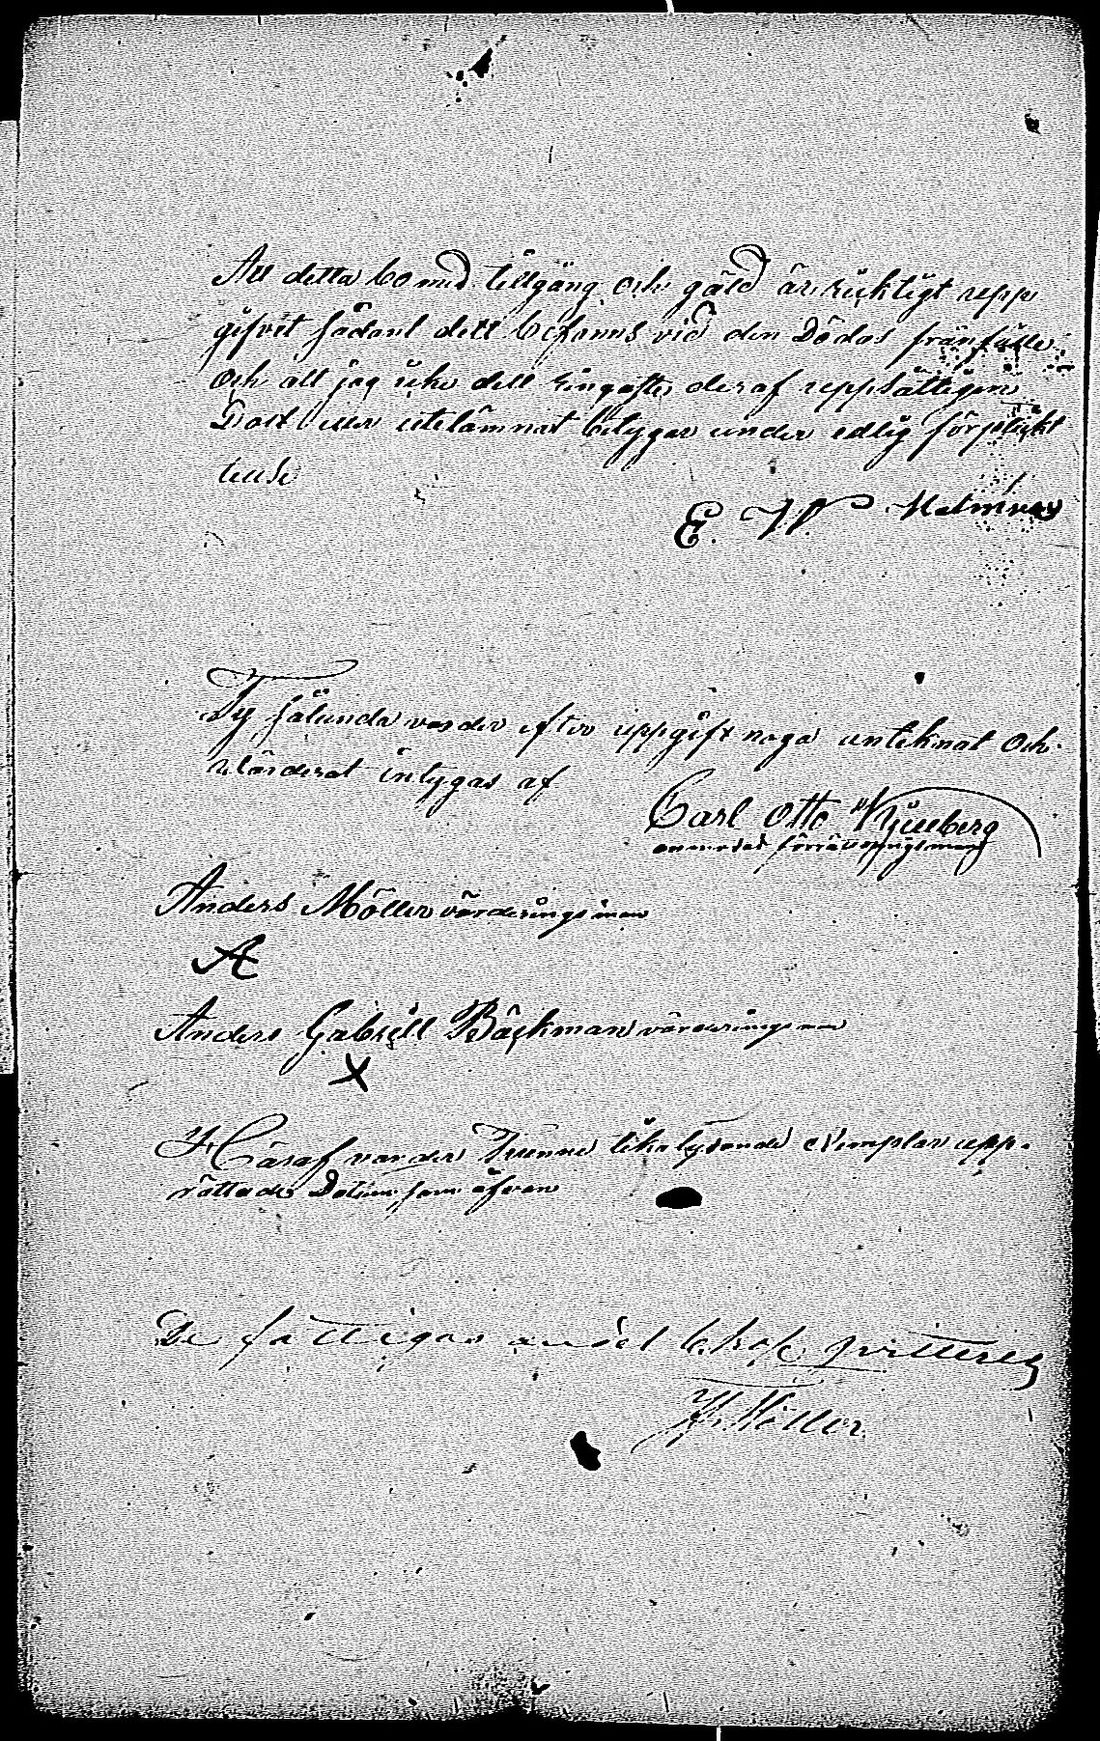 Att detta bo med tillgång och gäld är ricktigt upp
gifvit sådant dett befanns vid den Dödas frånfälle
Och att jag icke dett ringaste deraf uppsåtligen
Dolt eller utelämnat betygar under edlig förplickt
telse
E. W. Malmros
Ty sålunda varder efter uppgift noga anteknat Och
värderat intygas af
Carl Otto Kjellberg
anmodad förrättningsman
Anders Möller värderingsman
A
Anders Gabriell Bäckman värderingsman
X
Häraf varder Trenne lika lydande exemplar upp-
rättade Datum som ofvan
De fattigas andel bekof qvitteras
Möller